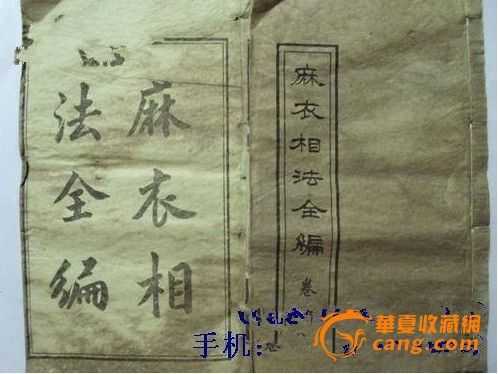 麻衣相
法全編
麻衣相法全編
卷
手机:
华夏收藏网
cang.com